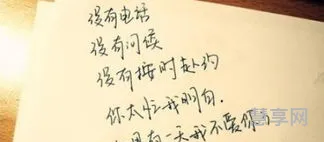 没有电话
没有问候
没有按时赴约
你太忙我明白.
有一天我不爱你
慧享网